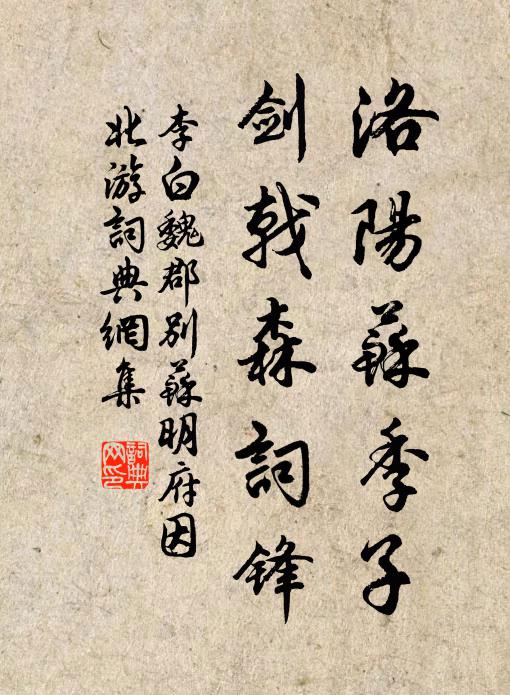 洛陽蘇季子
劍戟森詞鋒
李白魏郡别蘇明府因
北游詞典網集
詞典網印